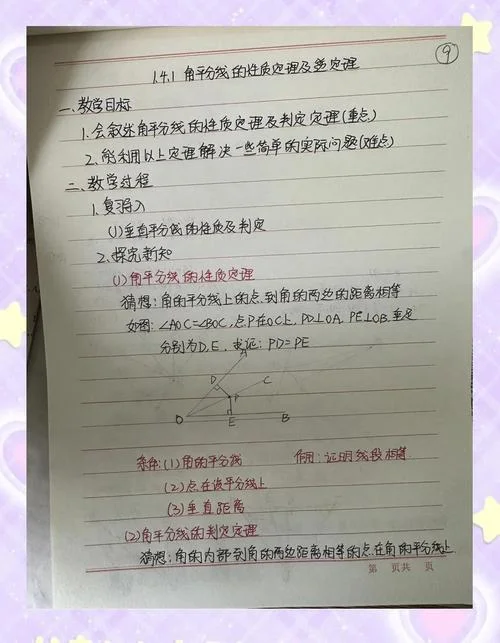 ⑨
1.4.1 角平分线的性质定理及逆定理
一、教学目标
1.会叙述角平分线的性质定理及判定定理(重点)
2.能利用以上定理解决一些简单的实际问题(难点)
二、教学过程
1.复习导入
(1)垂直平分线的性质及判定
2.探究新知
(1)角平分线的性质定理
猜想:角的平分线上的点到角的两边的距离相等
如图:∠AOC=∠BOC,点P在OC上,PD⊥OA,PE⊥OB,垂足
分别为D,E,求证:PD=PE
A
D
C
P
O
E
B
条件:(1)角的平分线 作用:证明线段相等
(2)点在该平分线上
(3)垂直距离
(2)角平分线的判定定理
猜想:角的内部到角的两边距离相等的点在角的平分线上
第 页共 页